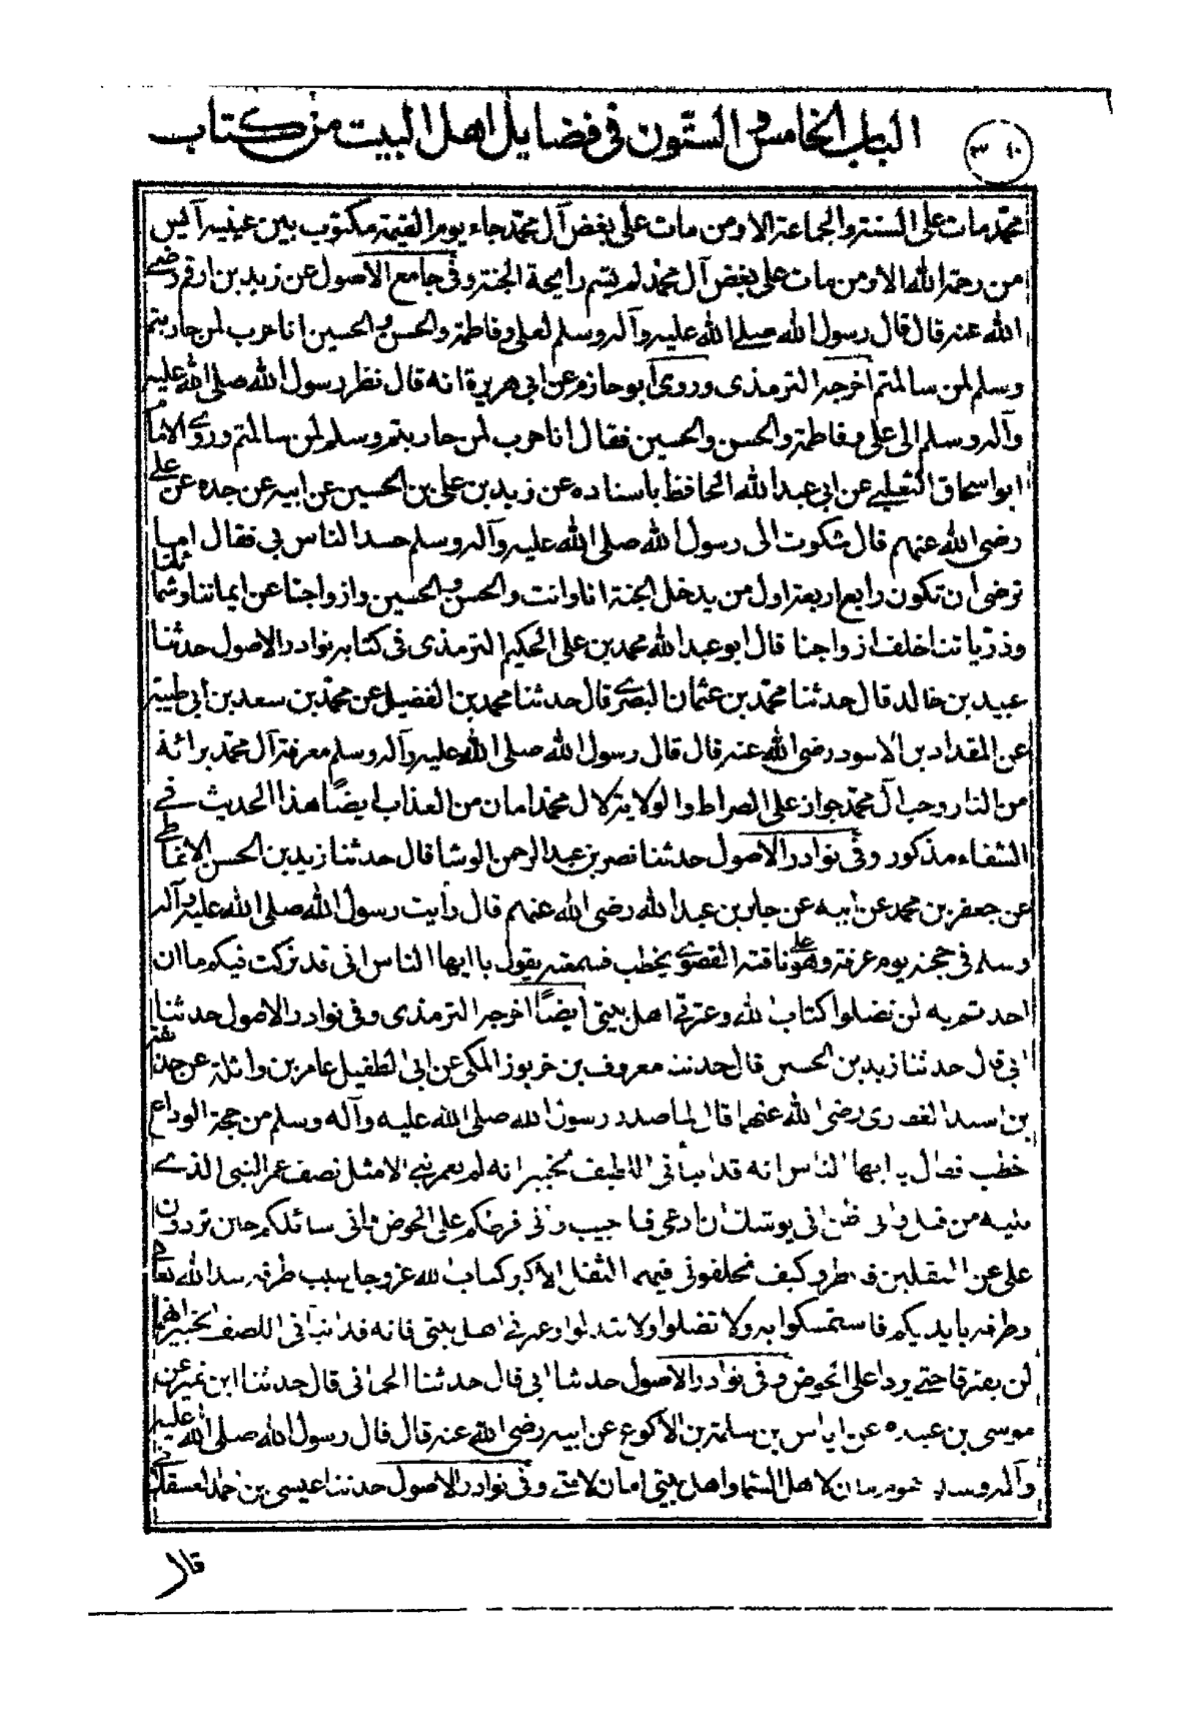 الباب الخامس والستون في فضايل اهل البيت من كتاب
محمد مات على السنة والجماعة الا ومن مات على بغض آل محمد جاء يوم القيمة مكتوب بين عينيه آيس
من رحمة الله الا ومن مات على بغض آل محمد لم يشم رايحة الجنة وفي جامع الاصول عن زيد بن ارقم رضي
الله عنه قال قال رسول الله صلى الله عليه وآله وسلم لعلي وفاطمة والحسن والحسين انا حرب لمن حاربتم
وسلم لمن سالمتم اخرجه الترمذى وروى ابو حازم عن ابي هريرة انه قال نظر رسول الله صلى الله عليه
وآله وسلم الى علي وفاطمة والحسن والحسين فقال انا حرب لمن حاربتم وسلم لمن سالمتم وروى الامام
ابو اسحاق الثعلبي عن ابي عبد الله الحافظ باسناده عن زيد بن علي بن الحسين عن ابيه عن جده عن علي
رضي الله عنهم قال شكوت الى رسول الله صلى الله عليه وآله وسلم حسد الناس بي فقال اما
ترضى ان تكون رابع اربعة اول من يدخل الجنة انا وانت والحسن والحسين وازواجنا عن ايماننا وشمائلنا
وذرياتنا خلف ازواجنا قال ابو عبد الله محمد بن علي الحكيم الترمذى في كتابه نوادر الاصول حدثنا
عبيد بن خالد قال حدثنا محمد بن عثمان البصري قال حدثنا محمد بن الفضيل عن محمد بن سعد بن ابي طيبة
عن المقداد بن الاسود رضي الله عنه قال قال رسول الله صلى الله عليه وآله وسلم معرفة آل محمد برائة
من النار وحب آل محمد جواز على الصراط والولاية لال محمد امان من العذاب ايضًا هذا الحديث في
الشفاء مذكور وفي نوادر الاصول حدثنا نصر بن عبد الرحمن الوشا قال حدثنا زيد بن الحسن الانماطي
عن جعفر بن محمد عن ابيه عن جابر بن عبد الله رضي الله عنهم قال رأيت رسول الله صلى الله عليه وآله
وسلم في حجته يوم عرفة وهو على ناقته القصوى يخطب فسمعته يقول يا ايها الناس انى قد تركت فيكم ما ان
اخذتم به لن تضلوا كتاب الله وعترتي اهل بيتي ايضًا اخرجه الترمذى وفي نوادر الاصول حدثنا
ابي قال حدثنا زيد بن الحسن قال حدثنا معروف بن خربوز المكي عن ابي الطفيل عامر بن واثلة عن حذيفة
بن اسيد الغفارى رضي الله عنهما قال لما صدر رسول الله صلى الله عليه وآله وسلم من حجة الوداع
خطب فقال يا ايها الناس انه قد نبأنى اللطيف الخبير انه لم يعمر نبي الا مثل نصف عمر النبى الذي
يليه من قبل وانى ظن انى يوشك ان ادعى فاجيب وانى فرطكم على الحوض وانى سائلكم حين تردون
علي عن الثقلين فانظروا كيف تخلفونى فيهما الثقل الاكبر كتاب الله عز وجل سبب طرفه بيد الله تعالى
وطرفه بايديكم فاستمسكوا به ولا تضلوا ولا تبدلوا وعترتى اهل بيتي فانه قد نبأنى اللطيف الخبير انهما
لن يفترقا حتى يردا على الحوض وفي نوادر الاصول حدثنا ابي قال حدثنا الحمانى قال حدثنا ابن نمير عن
موسى بن عبيده عن اياس بن سلمة بن الاكوع عن ابيه رضي الله عنه قال قال رسول الله صلى الله عليه
وآله وسلم النجوم امان لاهل السماء واهل بيتي امان لامتي وفي نوادر الاصول حدثنا عيسى بن احمد العسقلاني
قال